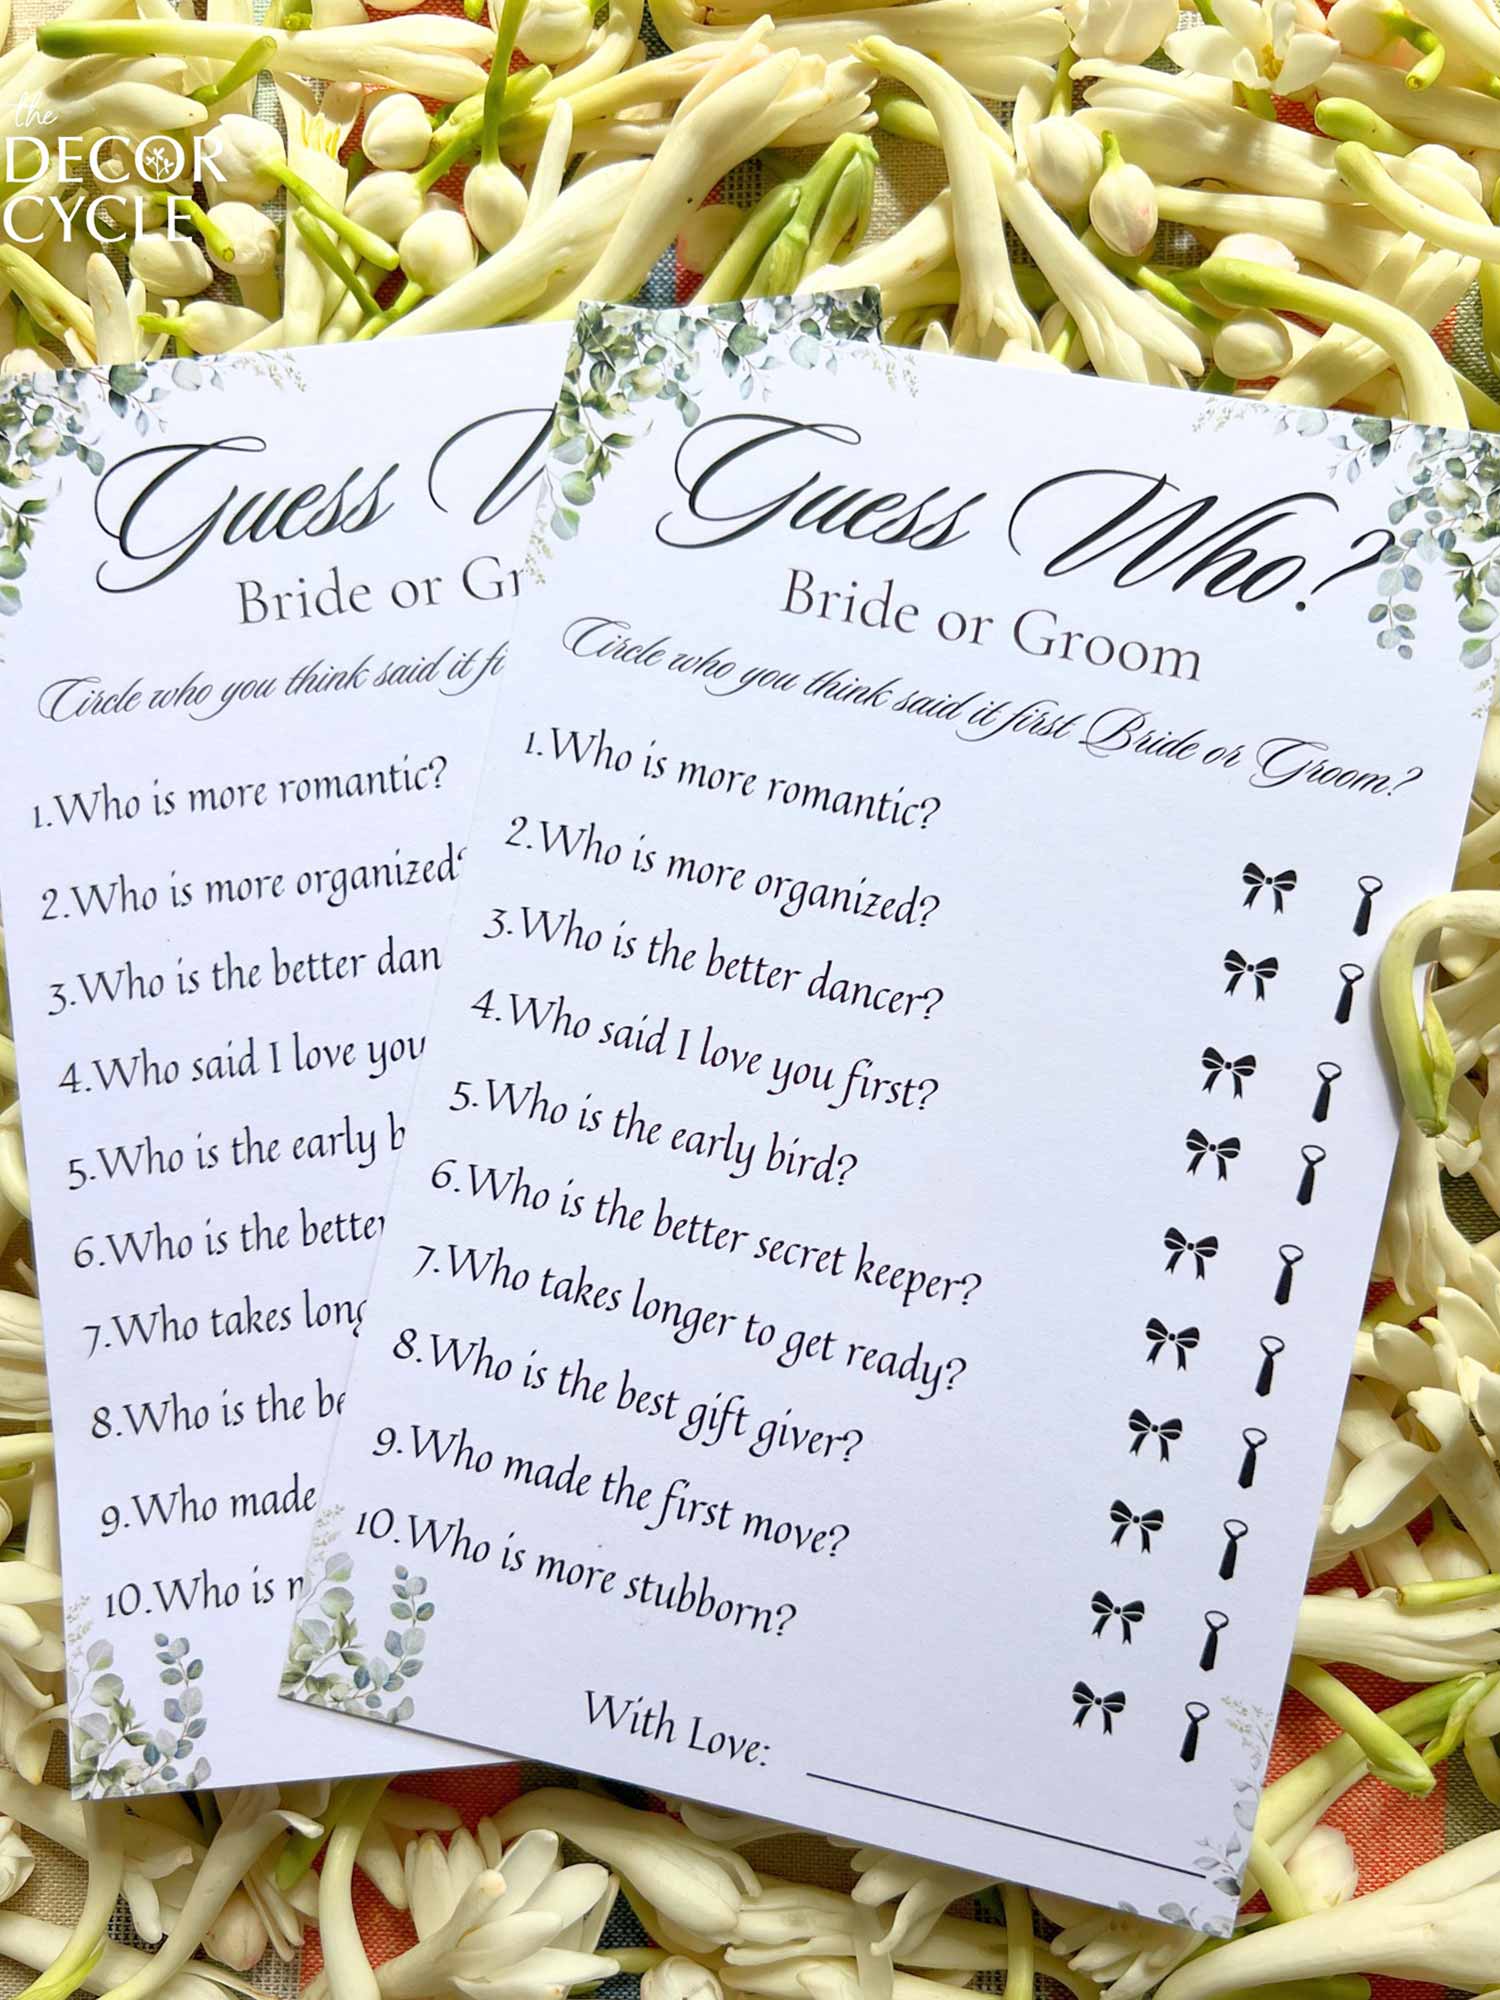 the
DECOR
CYCLE
Guess
Bride or
Circle who you think said it
1.Who is more romantic?
2.Who is more organized?
3.Who is the better
4.Who said I love you
5.Who is the early
6.Who is the better
7.Who takes
8.Who is the
9.Who made
10.Who is
Guess Who?
Bride or Groom
Circle who you think said it first Bride or Groom?
1.Who is more romantic?
2.Who is more organized?
3.Who is the better dancer?
4.Who said I love you first?
5.Who is the early bird?
6.Who is the better secret keeper?
7.Who takes longer to get ready?
8.Who is the best gift giver?
9.Who made the first move?
10.Who is more stubborn?
With Love: